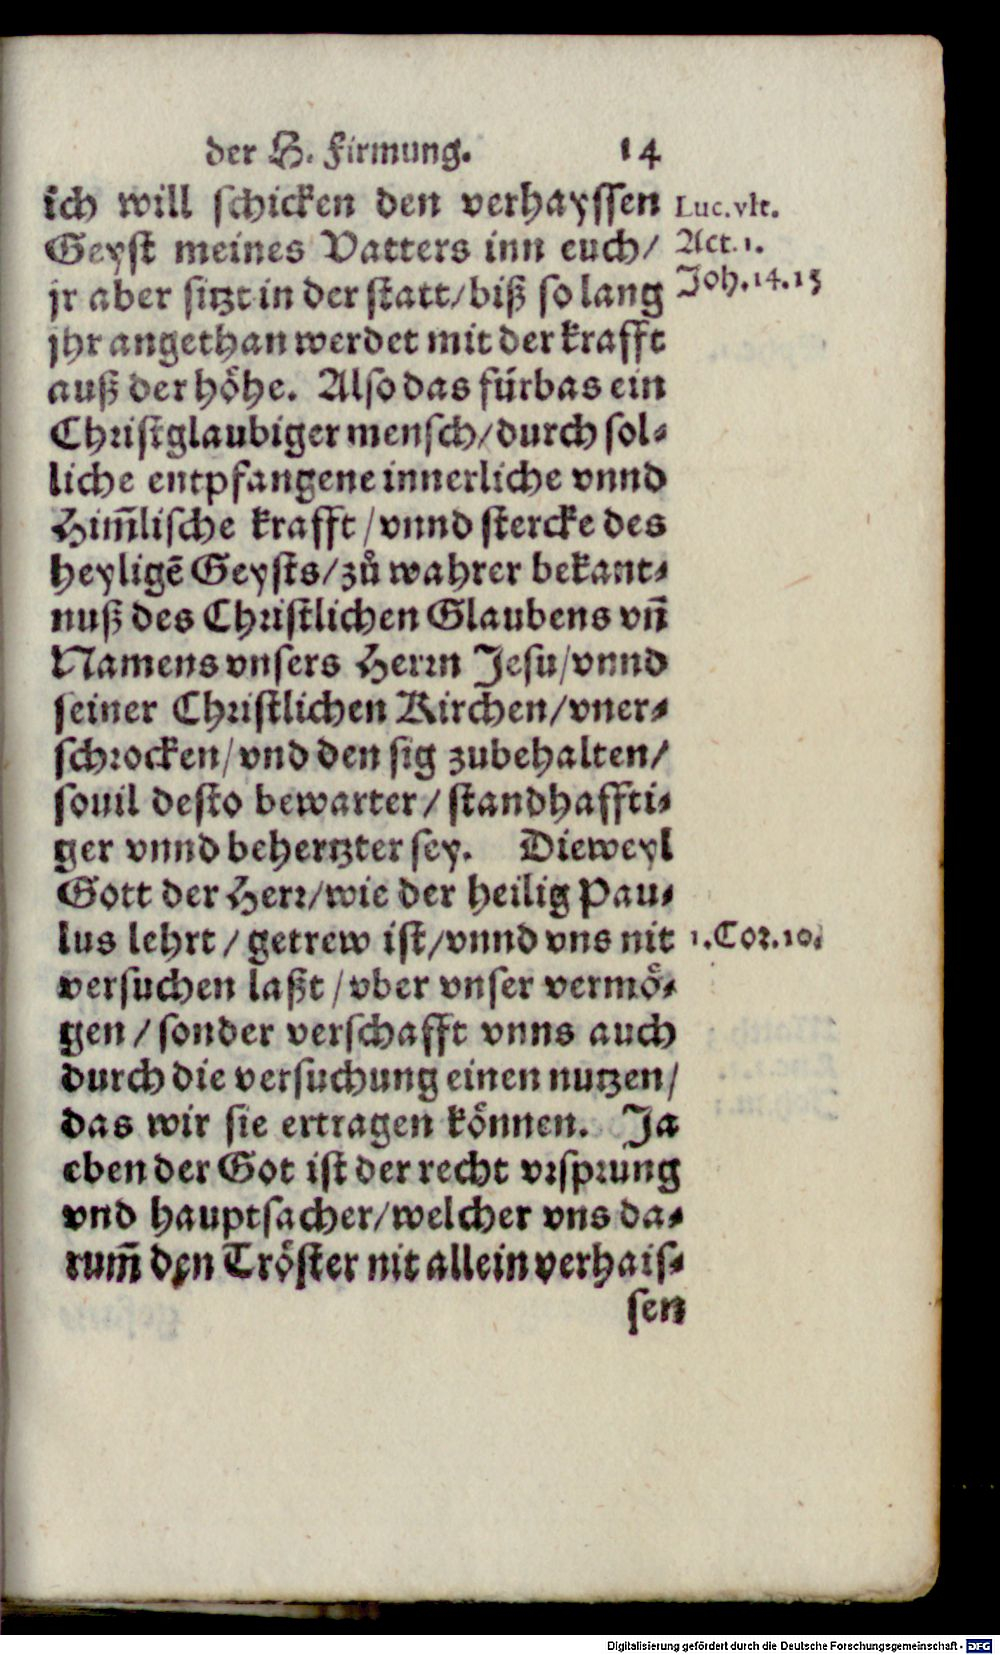 der H. Firmung. 14
ich will schicken den verhayssen
Geyst meines Vatters inn euch/
jr aber sitzt in der statt/biß so lang
jhr angethan werdet mit der krafft
auß der höhe. Also das fürbas ein
Christglaubiger mensch/durch sol-
liche entpfangene innerliche vnnd
Him̃lische krafft/vnnd stercke des
heyligẽ Geysts/zů wahrer bekant-
nuß des Christlichen Glaubens vñ
Namens vnsers Herrn Jesu/vnnd
seiner Christlichen Kirchen/vner-
schrocken/vnd den sig zubehalten/
souil desto bewarter/standhaffti-
ger vnnd behertzter sey. Dieweyl
Gott der Herr/wie der heilig Pau-
lus lehrt/getrew ist/vnnd vns nit
versuchen laßt/vber vnser vermö-
gen/sonder verschafft vnns auch
durch die versuchung einen nutzen/
das wir sie ertragen können. Ja
eben der Got ist der recht vrsprung
vnd hauptsacher/welcher vns da-
rum̃ den Tröster nit allein verhais-
sen
Luc.vlt.
Act.1.
Joh.14.15
1.Cor.10.
Digitalisierung gefördert durch die Deutsche Forschungsgemeinschaft - DFG